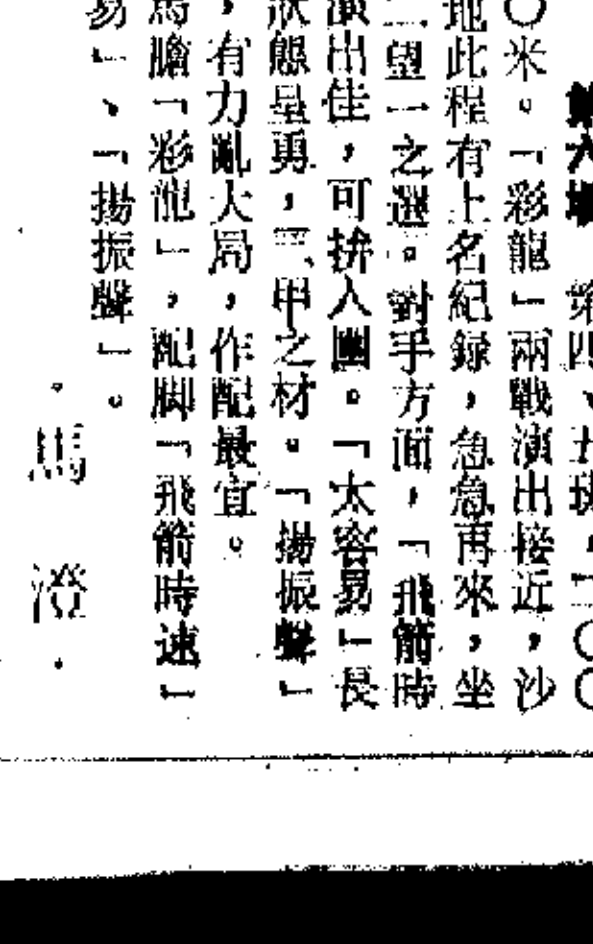 第六場　第四、五班，二〇〇
〇米。「彩龍」兩戰演出接近，沙
地此程有上名紀錄，急急再來，坐
二望一之選。對手方面，「飛箭時
演出佳，可拚入圍。「太容易」長
狀態呈勇，三甲之材。「揚振聲」
，有力亂大局，作配最宜。
馬膽「彩龍」，配脚「飛箭時速」
易」、「揚振聲」。
·馬　澄·